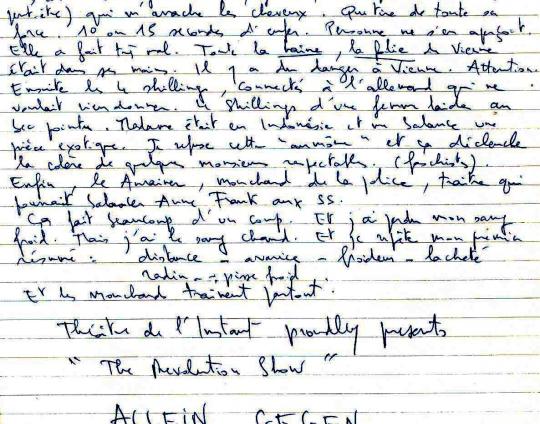 qui m'arrache les cheveux. Qui tire de toute sa
force. 10 ou 15 secondes d'enfer. Personne ne s'en aperçoit.
Elle a fait très mal. Toute la haine, la folie de Vienne
était dans ses mains. Il y a du danger à Vienne. Attention.
Ensuite les 4 shillings, connectés à l'allemand qui ne
voulait rien donner. 4 shillings d'une femme laide au
bec pointu. Madame était en Indonésie et me balance une
pièce exotique. Je refuse cette "aumône" et ça déclenche
la colère de quelques messieurs respectables. (fascistes)
Enfin, le , mouchard de la police, traître qui
pourrait balancer Anne Frank aux SS.
Ça fait beaucoup d'un coup. Et j'ai perdu mon sang
froid. Mais j'ai le sang chaud. Et je répète mon premier
résumé : distance - avarice - froideur - lacheté
radin - pisse froid
Et les mouchard trainent partout.
Théâtre de l'Instant proudly presents
"The Revolution Show"
ALLEIN GEGEN